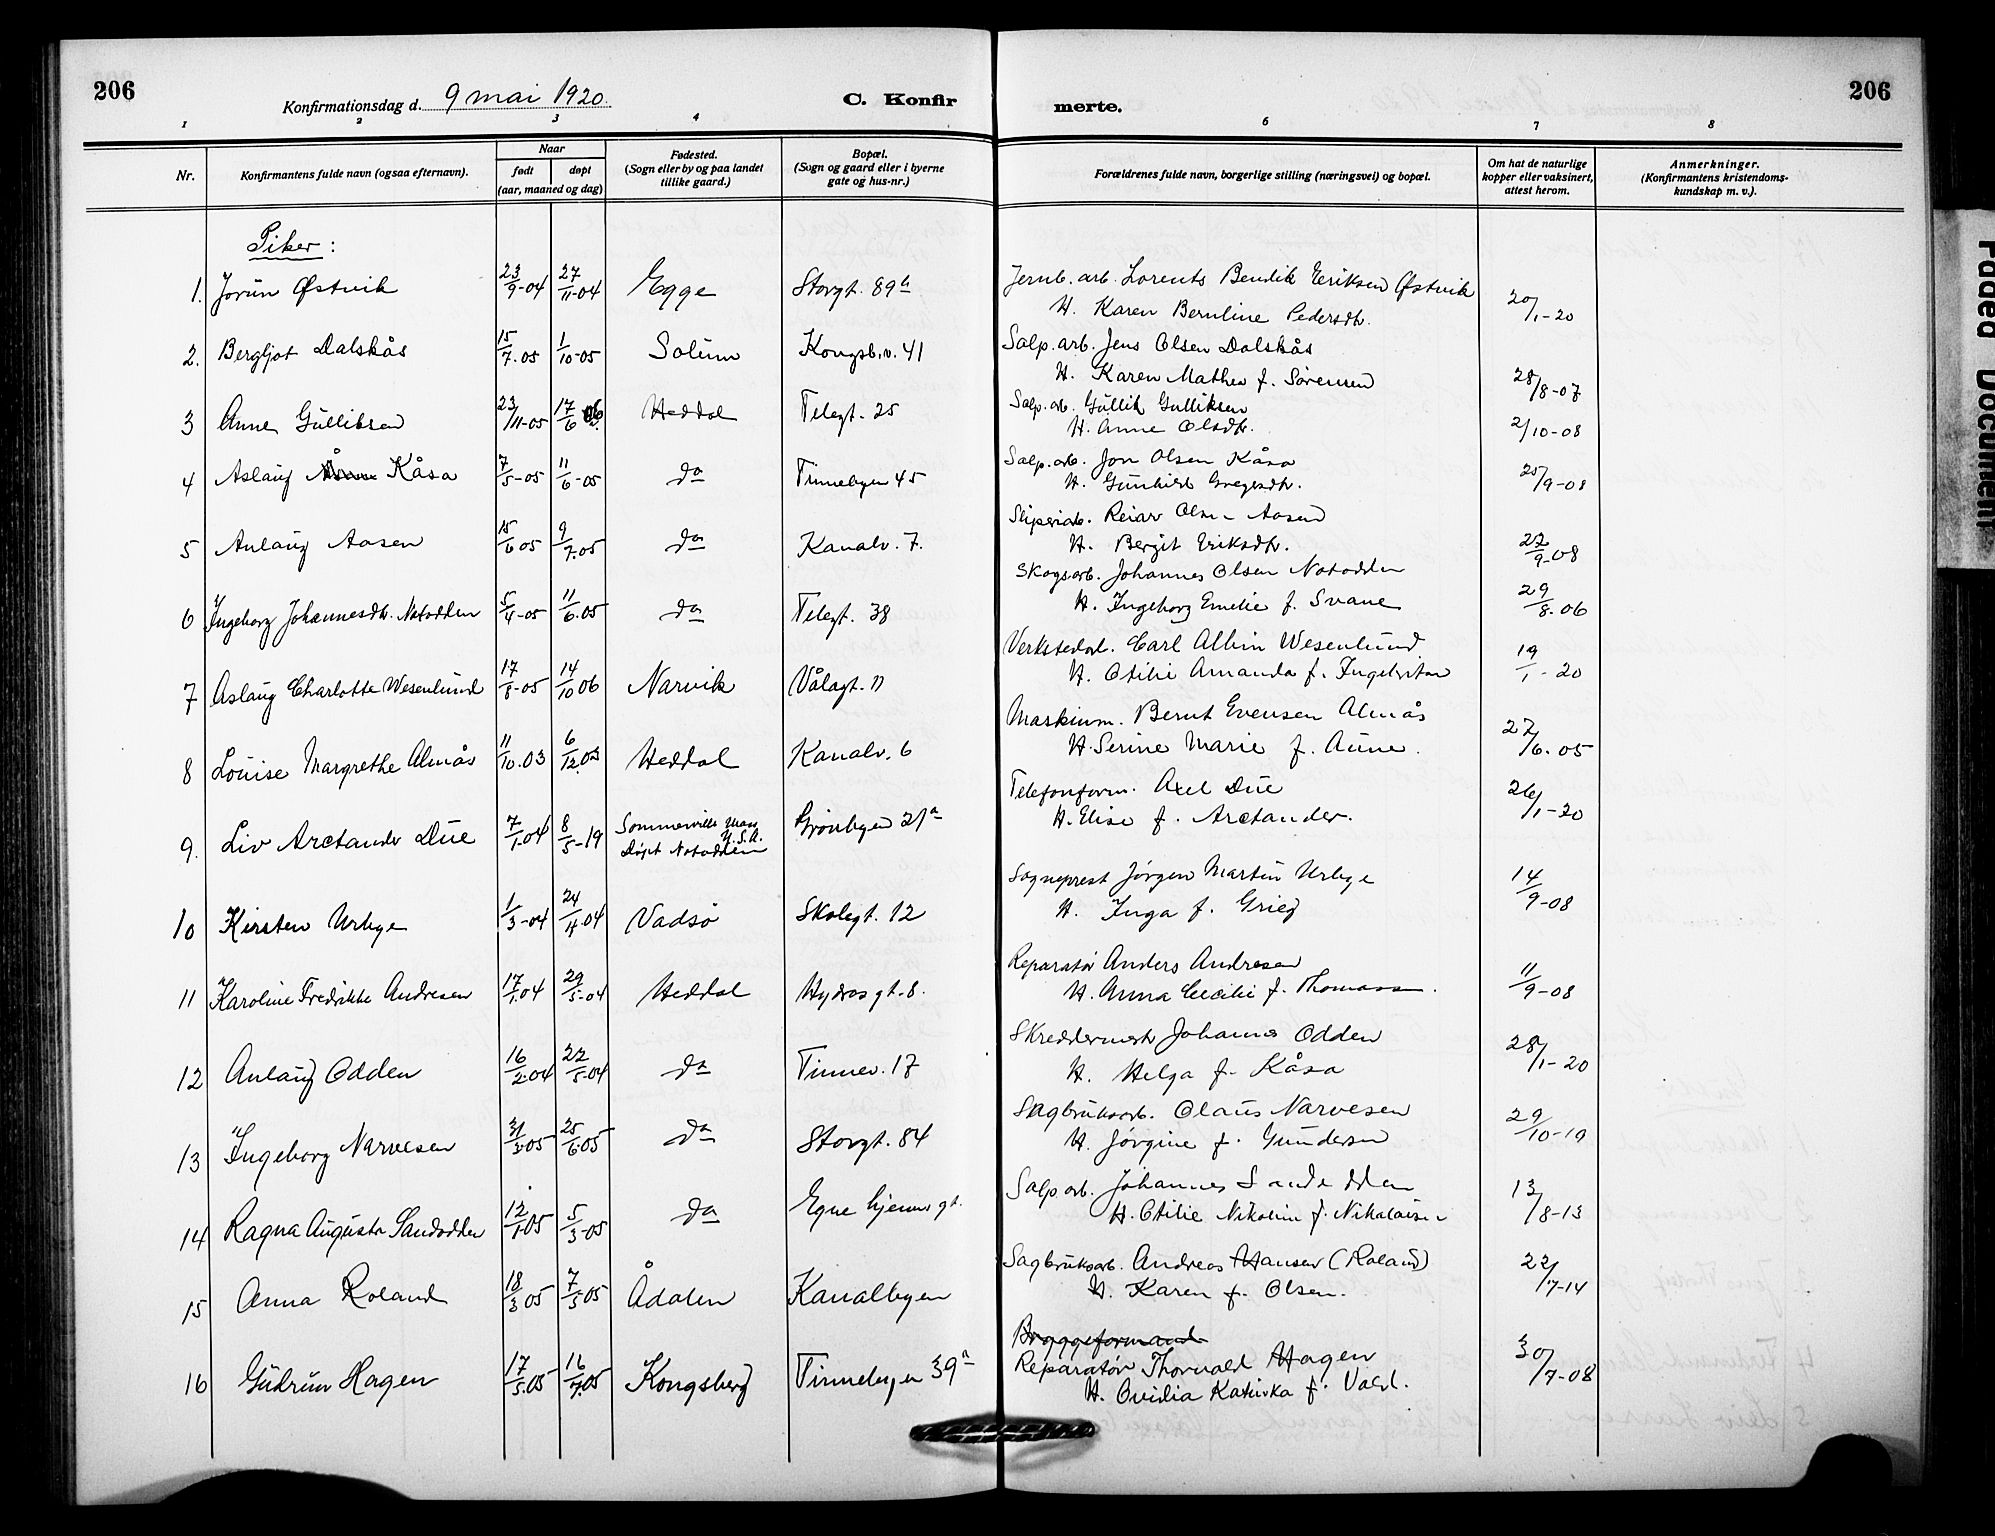 206
Konfirmationsdag d. 9 mai 1920.
C. Konfir
merte.
206
1 2 3 4 6 7 8
Nr.
Konfirmantens fulde navn (ogsaa efternavn).
Naar
født døpt
(aar, maaned og dag)
Fødested.
(Sogn eller by og paa landet
tillike gaard.)
Bopæl.
(Sogn og gaard eller i byerne
gate og hus-nr.)
Forældrenes fulde navn, borgerlige stilling (næringsvei) og bopæl.
Om hat de naturlige
kopper eller vaksinert,
attest herom.
Anmerkninger.
(Konfirmantens kristendoms-
kundskap m. v.).
Piker:
1. Jorun Østvik 23/9-04 27/11-04 Egge Storgt. 89a Jernb. arb. Lorents Bendik Eriksen Østvik
H. Karen Bernline Pedersdtr. 20/1-20
2. Bergljot Dalskås 15/7.05 1/10-05 Solum Kongsb.v. 41 Salp. arb. Jens Olsen Dalskås
H. Karen Mathea f. Sørensen 28/8-07
3 Anne Gulliksen 23/11-05 17/6 06 Heddal Telegt. 25 Salp. arb. Gullik Gulliksen
H. Anne Olsdtr. 2/10-08
4 Aslaug Kåsa 7/5-05 11/6-05 da Tinnebyen 45 Salp. arb. Jon Olsen Kåsa
H. Gunhild Gregersdtr. 25/9-08
5 Anlaug Aasen 15/6 05 9/7.05 da Kanalv. 7. Sliperiarb. Reiar Olsen Aasen
H. Bergit Eriksdtr. 22/9-08
6 Ingeborg Johannesdtr. Notodden 5/4-05 11/6.05 da Telegt. 38 Skogsarb. Johannes Olsen Notodden
H. Ingeborg Emelie f. Svane 29/8.06
7 Aslaug Charlotte Wesenlund 17/8-05 14/10 06 Narvik Vålagt. 11 Verkstedarb. Carl Albin Wesenlund
H. Otilie Amanda f. Ingebritsen 19/1-20
8 Louise Margrethe Almås 11/10.03 6/12.03 Heddal Kanalv. 6 Maskinm. Bernt Evensen Almås
H. Serine Marie f. Aune. 27/6.05
9. Liv Arctander Due 7/1.04 8/5-19 Sommerville Mass
U.S.A.
Døpt Notodden Grønbyen 21a Telefonform. Axel Due
H. Elise f. Arctander. 26/1-20
10 Kirsten Urbye 1/3-04 24/4.04 Vadsø Skolegt. 12 Sogneprest Jørgen Martin Urbye
H. Inga f. Grieg 14/9-08
11 Karoline Fredrikke Andresen 17/1.04 29/5-04 Heddal Hydros gt. 8. Reparatør Anders Andresen
H. Anna Cecilie f. Thomassen. 11/9-08
12 Anlaug Odden 16/2.04 22/5-04 da Tinnev. 17 Skreddermest. Johannes Odden
H. Helga f. Kåsa 28/1-20
13 Ingeborg Narvesen 31/3.05 25/6.05 da Storgt. 84 Sagbruksarb. Olaus Narvesen
H. Jørgine f. Gundersen 29/10-19
14 Ragna Augusta Sandodden 12/1.05 5/3-05 da Egne hjems gt. Salp. arb. Johannes Sandodden
H. Otilie Nikoline f. Nikolaisen 13/8-13
15 Anna Roland 18/3 05 7/5 05 Ådalen Kanalbyen Sagbruksarb. Andreas Hansen (Roland)
H. Karen f. Olsen. 22/7-14
16 Gudrun Hagen 17/5.05 16/7.05 Kongsberg Tinnebyen 39a Bryggeformand
Reparatør Thorvald Hagen
H. Ovidia Katinka f. Vold. 30/7-08
Paged Document